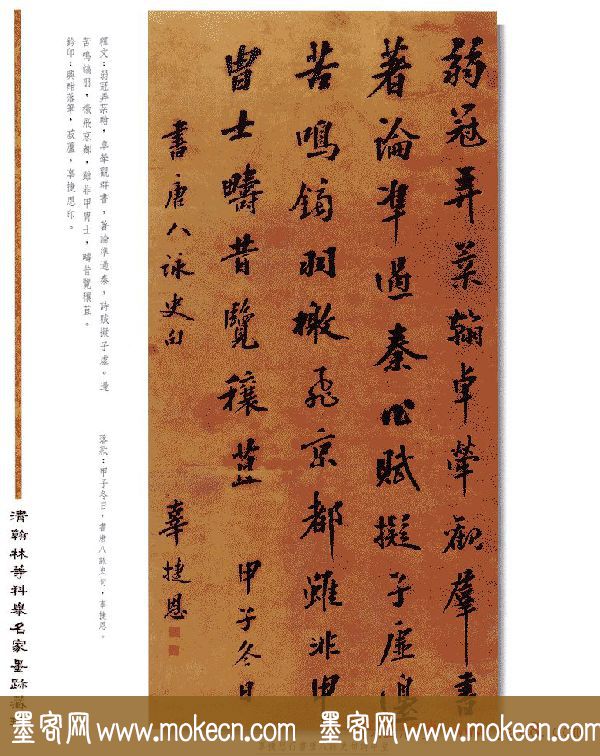 弱冠弄柔翰卓犖觀羣書
著論準過秦作賦擬子虛邊
苦鳴鏑羽檄飛京都雖非甲
冑士疇昔覽穰苴 甲子冬日
書唐人詠史句 辜捷恩
釋文：弱冠弄柔翰，卓犖觀群書，著論準過秦，詩賦擬子虛。邊
苦鳴鏑羽，檄飛京都，雖非甲冑士，疇昔覽穰苴。
鈐印：興酣落筆，廬，辜捷恩印。
落款：甲子冬日，書唐八詠史句，辜捷恩。
清翰林等科舉名家墨跡
墨客网 www.mokecn.com 墨客网 www.mokecn.com